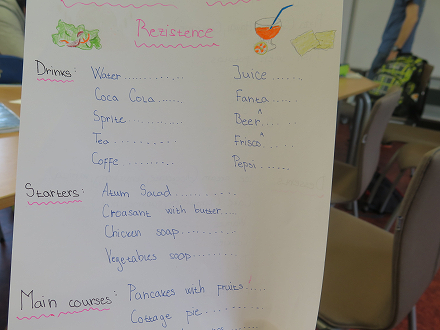 Rezistence
Drinks: Water........... Juice ......
Coca Cola...... Fanta.......
Sprite.......... Beer.......
Tea........... Frisco.......
Coffe......... Pepsi......
Starters: Atum Salad..........
Croasant with butter....
Chicken soap..........
Vegetables soap........
Main courses: Pancakes with fruits....
Cottage pie.............